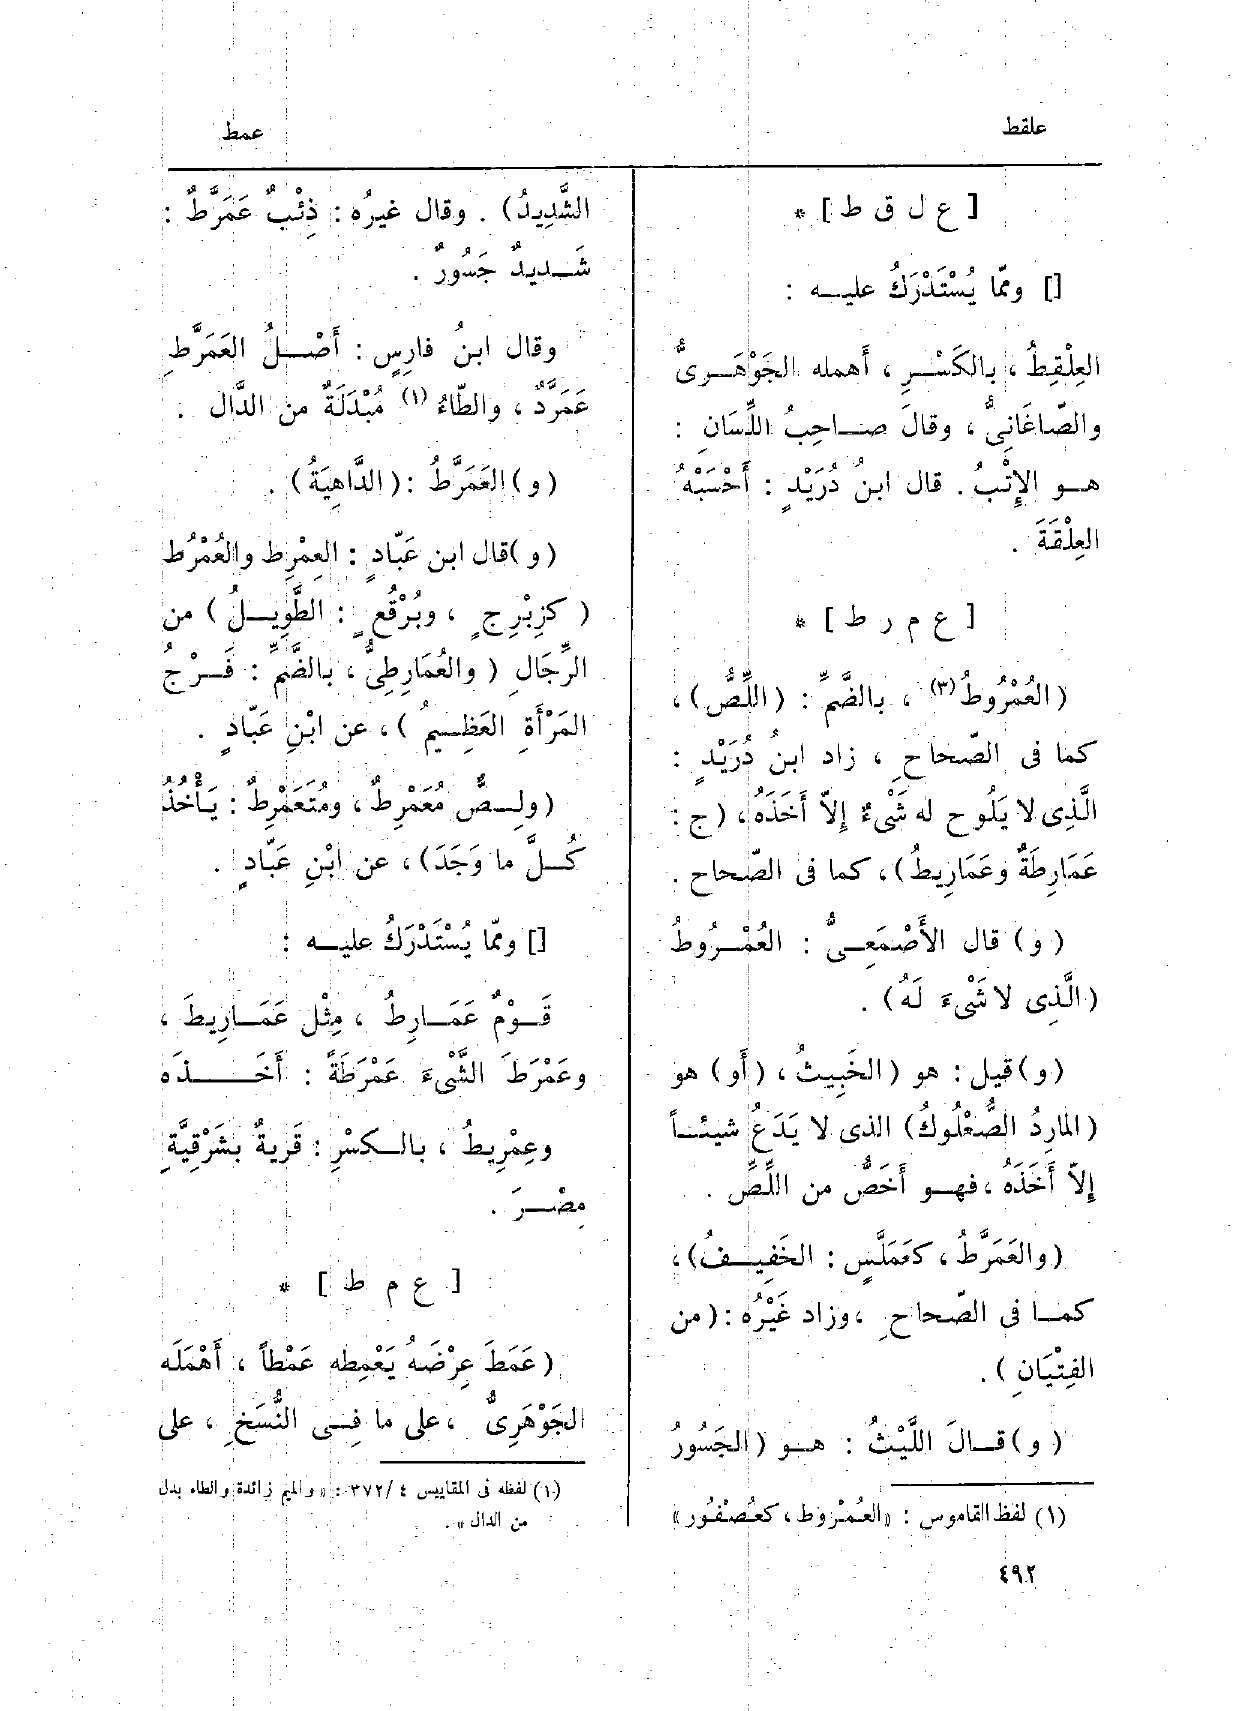 علقط
عمط
[ ع ل ق ط ] *
[] وممّا يُسْتَدْرَكُ عليـه :
العِلْقِطُ ، بالكَسْـرِ ، أهمله الجَوْهَـرِىُّ
والصّاغَانِىُّ ، وقالَ صـاحِبُ اللِّسَانِ :
هـو الإِتْبُ . قال ابنُ دُرَيْدٍ : أَحْسَبُهُ
العِلْقَةَ .
[ ع م ر ط ] *
(العُمْرُوطُ(٣) ، بالضَّمِّ : (اللِّصُّ) ،
كما فى الصّحاحِ ، زاد ابنُ دُرَيْدٍ :
الَّذِى لا يَلُوح له شَىْءٌ إِلاّ أَخَذَهُ ، (ج :
عَمَارِطَةٌ وعَمَارِيطُ) ، كما فى الصّحاح .
( و ) قال الأَصْمَعِـىُّ : العُمْـرُوطُ
(الَّذِى لا شَىْءَ لَهُ) .
( و ) قيل : هو (الخَبِيثُ ، (أَو) هو
(المَارِدُ الصُّعْلُوكُ) الذى لا يَدَعُ شيئـاً
إِلاّ أَخَذَهُ ، فهـو أَخَصُّ من اللِّصِّ .
(والعَمَرَّطُ ، كعَمَلَّسٍ : الخَفِيـفُ) ،
كمـا فى الصّحاحِ ، وزاد غَيْرُه : (من
الفِتْيَانِ ) .
( و ) قـالَ اللَّيْثُ : هـو (الجَسُورُ
(١) لفظ القاموس : «العُمْرُوط ، كعُصْفُور»
٤٩٢
الشَّدِيدُ) . وقال غيرُه : ذِئْبٌ عَمَرَّطٌ :
شَـديدٌ جَسُورٌ .
وقال ابنُ فارِسٍ : أَصْـلُ العَمَرَّطِ
عَمَرَّدٌ ، والطّاءُ (١) مُبْدَلَةٌ من الدَّال .
( و ) العَمَرَّطُ : (الدَّاهِيَةُ) .
( و )قال ابن عَبّادٍ : العِمْرِط والعُمْرُط
( كزِبْرِجٍ ، وبُرْقُعٍ : الطَّوِيـلُ ) من
الرِّجَالِ ( والعُمَارِطِىُّ ، بالضَّمِّ : فَـرْجُ
المَرْأَةِ العَظِـيمُ ) ، عن ابْنِ عَبّادٍ .
(ولِـصٌّ مُعَمْرِطٌ ، ومُتَعَمْرِطٌ : يَأْخُذُ
كُـلَّ ما وَجَدَ) ، عن ابْنِ عَبّادٍ .
[] وممّا يُسْتَدْرَكُ عليـه :
قَـوْمٌ عَمَـارِطُ ، مِثْل عَمَـارِيطَ ،
وعَمْرَطَ الشَّىْءَ عَمْرَطَةً : أَخَـــذَه
وعِمْرِيطُ ، بالـكسْرِ : قَريةٌ بشَرْقِيَّةِ
مِصْـرَ .
[ ع م ط ] *
( عَمَطَ عِرْضَهُ يَعْمِطه عَمْطاً ، أَهْمَلَه
الجَوْهَرِىُّ ، على ما فِـى النُّسَخِ ، على
(١) لفظه فى المقاييس ٤ /٣٧٢ : «والميم زائدة والطاء بدل
من الدال » .